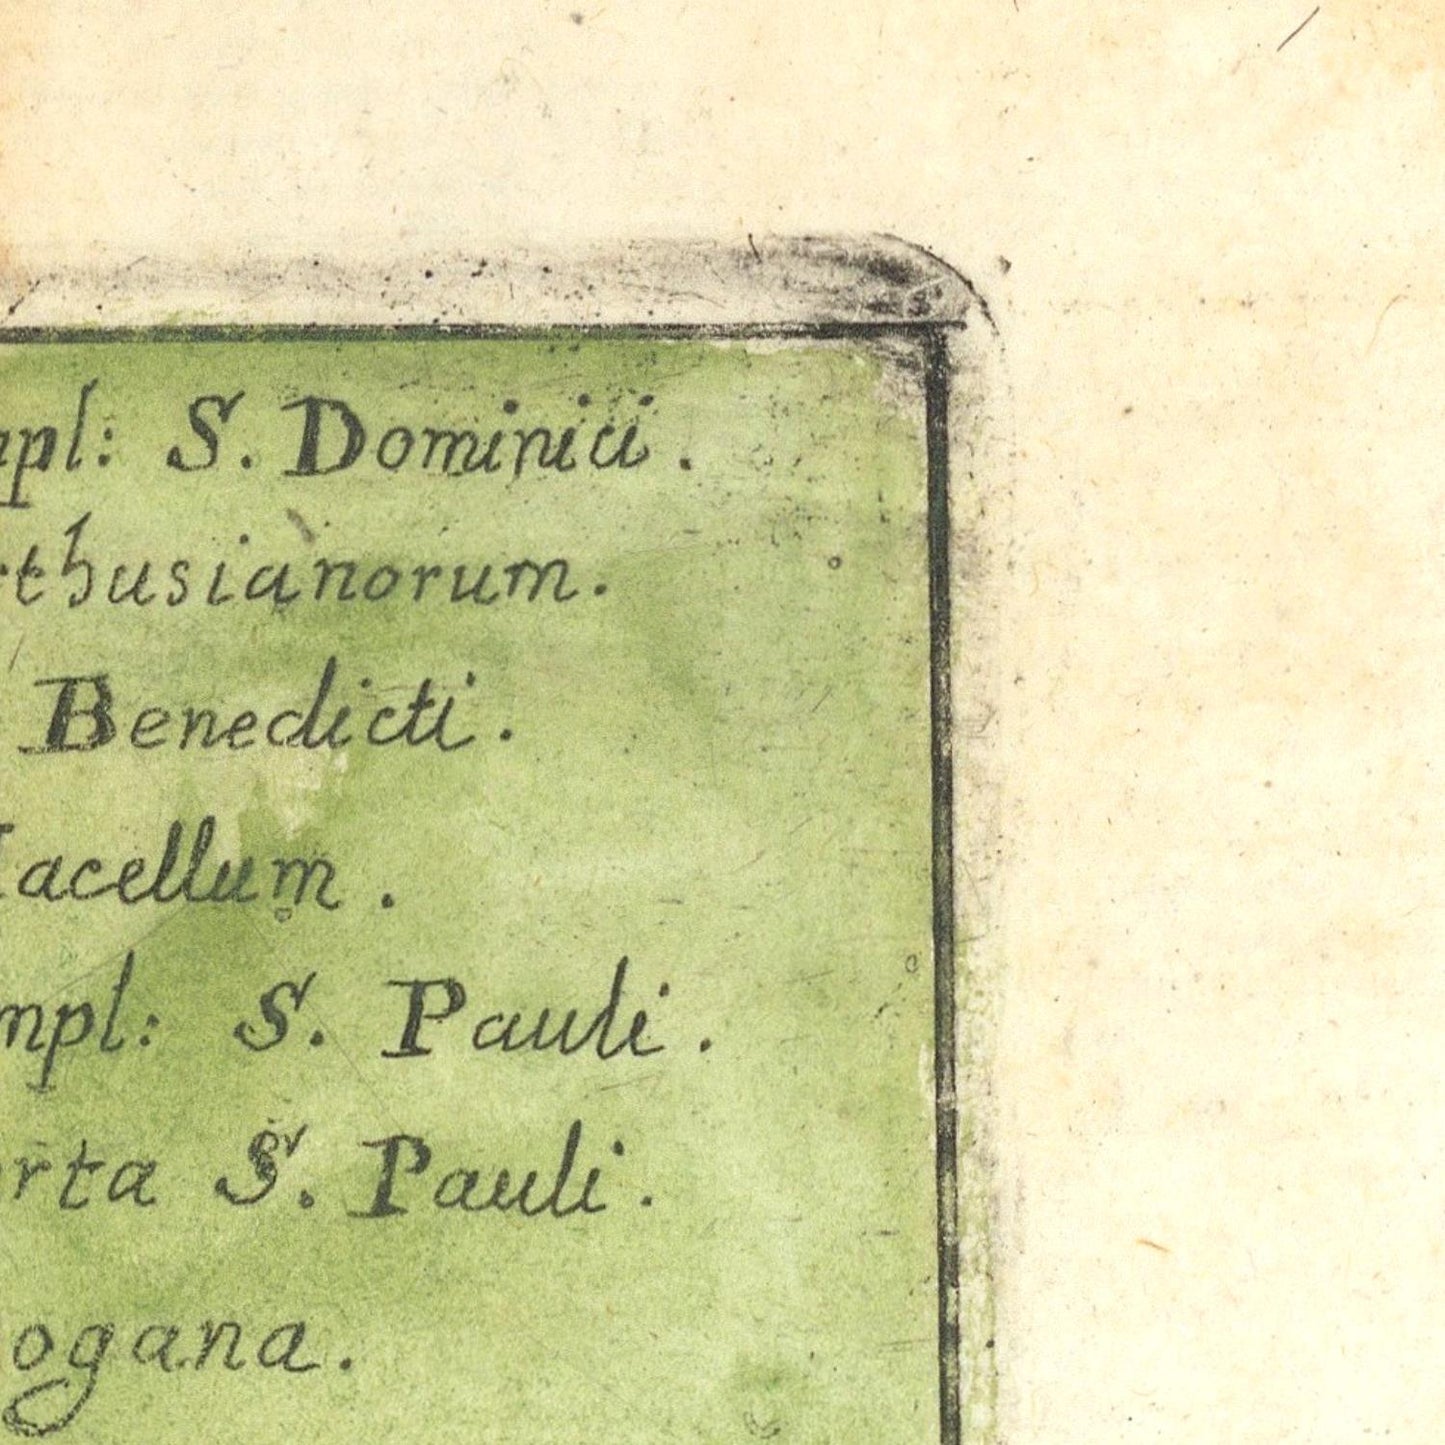 mpl: S. Dominici.
rthusianorum.
Benedicti.
acellum.
mpl: S. Pauli.
rta S. Pauli.
ogana.